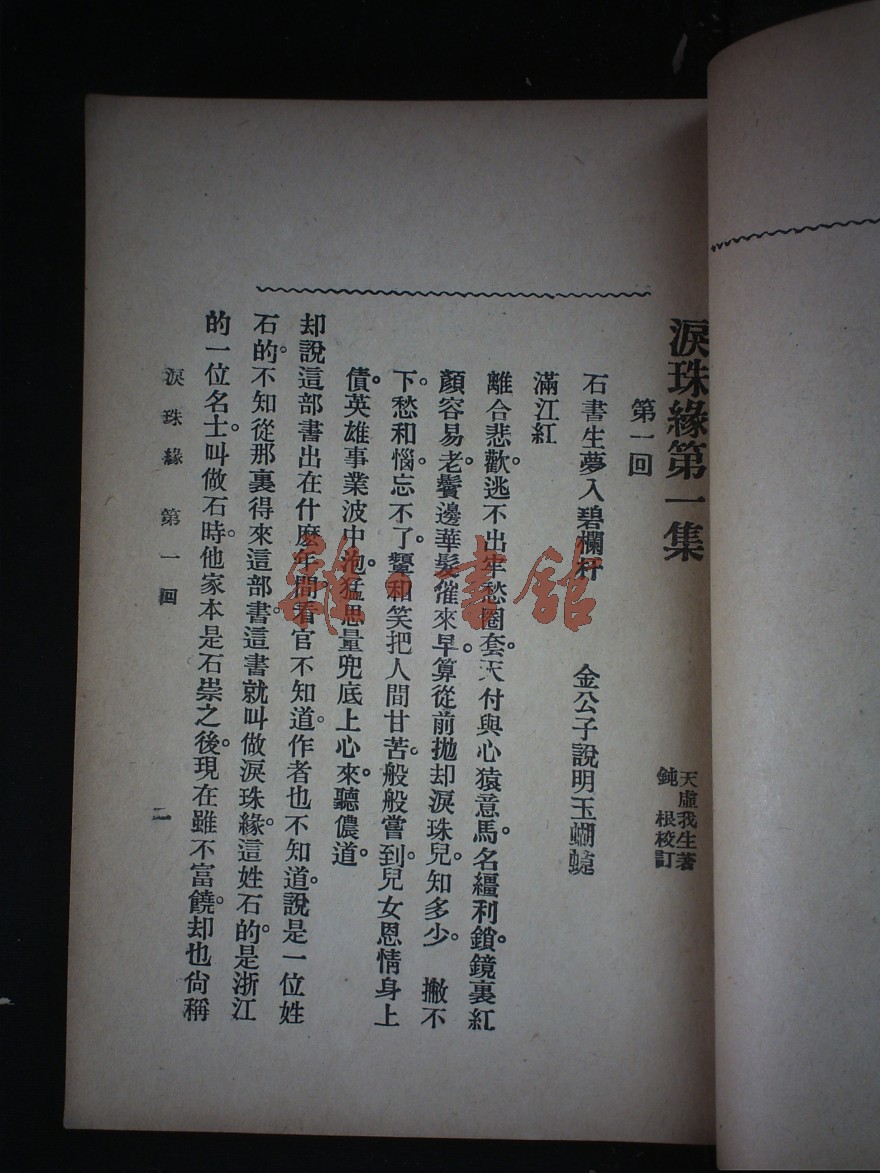 淚珠緣第一集
天虛我生著
鈍根校訂
第一回
石書生夢入碧欄杆　金公子說明玉蝴蝶
滿江紅
離合悲歡。逃不出牢愁圈套。天付與心猿意馬。名繮利鎖。鏡裏紅
顏容易老。鬢邊華髮催來早。算從前拋却淚珠兒。知多少。　撇不
下。愁和惱。忘不了。顰和笑。把人間甘苦。般般嘗到。兒女恩情身上
債。英雄事業波中泡。猛思量兜底上心來。聽儂道。
却說這部書出在什麽年間。看官不知道。作者也不知道。說是一位姓
石的。不知從那裏得來這部書。這書就叫做淚珠緣。這姓石的。是浙江
的一位名士。叫做石時。他家本是石崇之後。現在雖不富饒。却也尙稱
淚珠緣　第一回
一
雜·書館